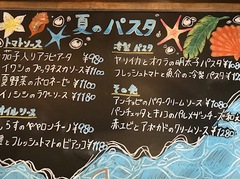 夏のパスタ
トマトソース
茄子入アラビアータ ¥980
イワシのプッタネスカソース ¥1100
夏野菜のボロネーゼ ¥1100
イノシシのラグーソース ¥1180
オイルソース
しらすのペペロンチーノ ¥980
とフレッシュトマトのビアンコ ¥1180
冷製パスタ
ヤリイカとオクラの明太子パスタ ¥980
フレッシュトマトと魚介の冷製パスタ
その他
アンチョビのバタークリームソース ¥1080
パンチェッタとキノコのパルメザンチーズ
赤エビとアボカドのクリームソース ¥1280